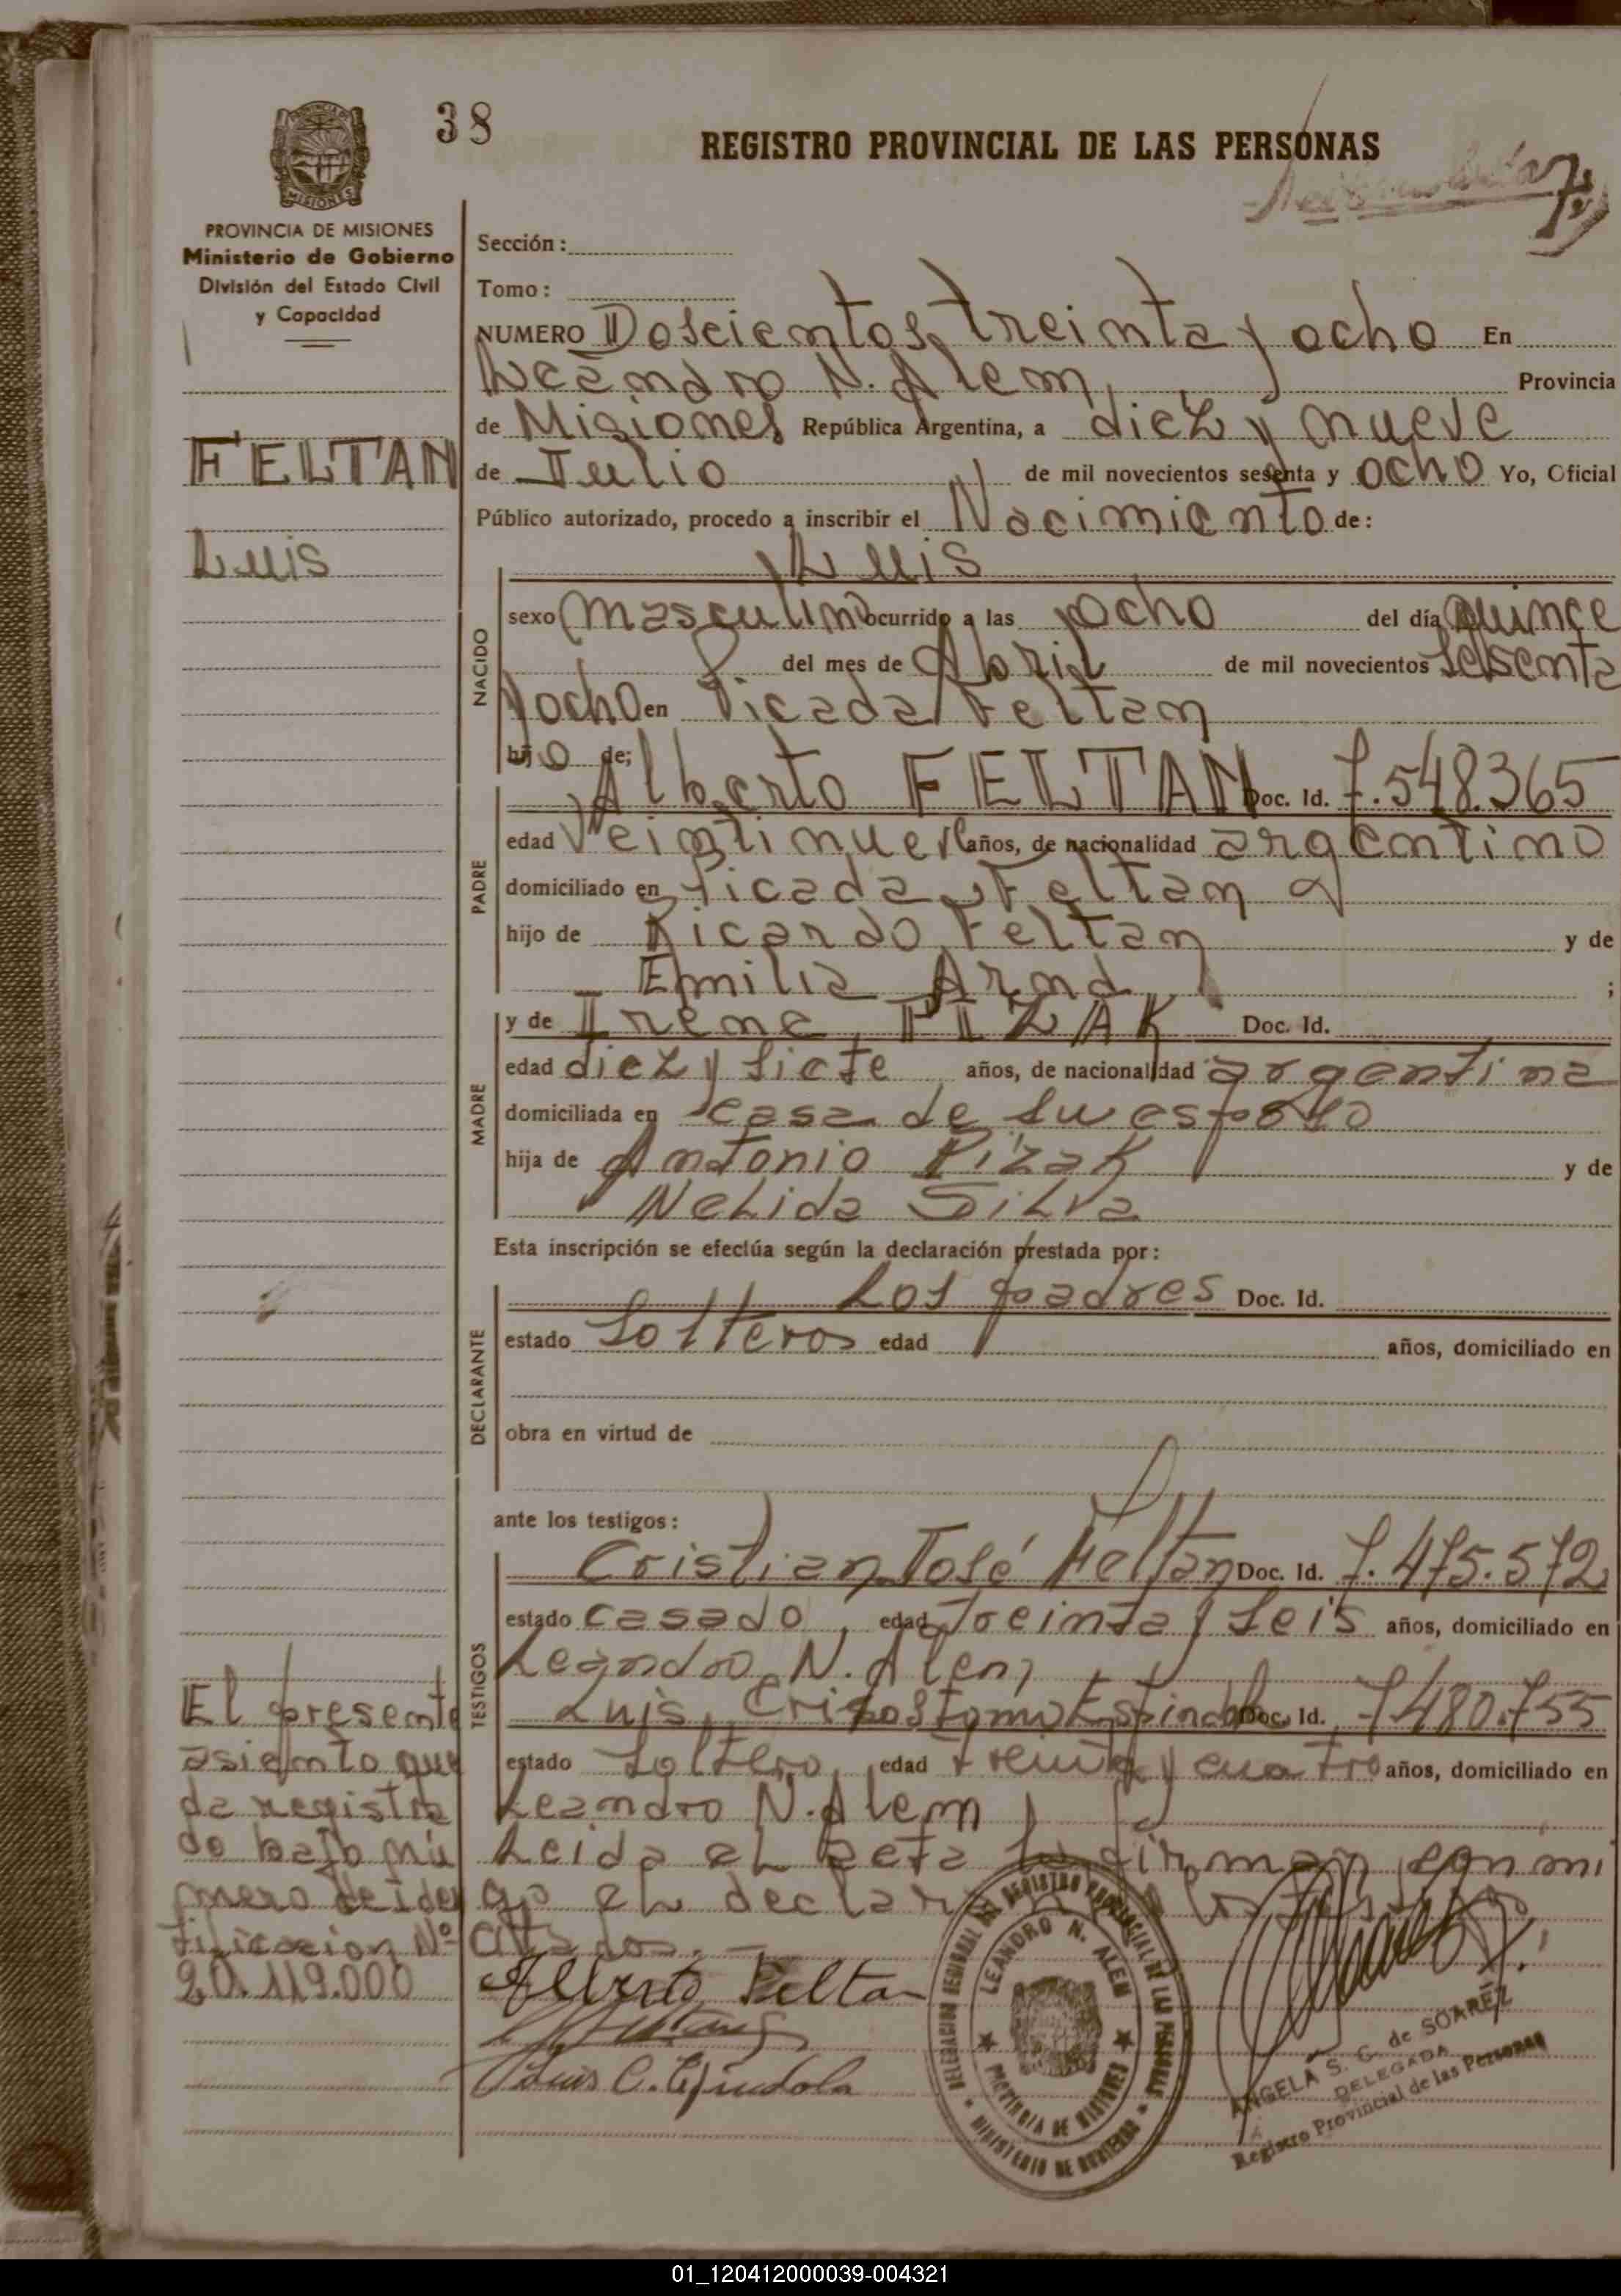 38
REGISTRO PROVINCIAL DE LAS PERSONAS
PROVINCIA DE MISIONES
Ministerio de Gobierno
División del Estado Civil
y Capacidad
FELTAN
Luis
Sección:
Tomo:
NUMERO Doscientos treinta y ocho En
Leandro N. Alem, Provincia
de Misiones República Argentina, a diez y nueve
de Julio de mil novecientos sesenta y ocho Yo, Oficial
Público autorizado, procedo a inscribir el Nacimiento de:
Luis
NACIDO
sexo masculino ocurrido a las ocho del día quince
del mes de Abril de mil novecientos sesenta
y ocho en Picada Feltan
hijo de;
PADRE
Alberto FELTAN Doc. Id. 7.548.365
edad Veintinueve años, de nacionalidad argentino
domiciliado en Picada Feltan
hijo de Ricardo Feltan y de
Emilia Arnd ;
MADRE
y de Irene PIZAK Doc. Id.
edad diez y siete años, de nacionalidad argentina
domiciliada en casa de su esposo
hija de Antonio Pizak y de
Nelida Silva
Esta inscripción se efectúa según la declaración prestada por:
DECLARANTE
Los padres Doc. Id.
estado Solteros edad años, domiciliado en
obra en virtud de
ante los testigos:
TESTIGOS
Cristian José Feltan Doc. Id. 7.475.572
estado casado, edad treinta y seis años, domiciliado en
Leandro N. Alem,
Luis Crisostomo Espindola Doc. Id. 7.480.755
estado soltero, edad treinta y cuatro años, domiciliado en
Leandro N. Alem
Leida el acta la firman con mi
go el los testigos
citados.-
El presente
asiento que
da registra
do bajo nú
mero de iden
tificacion Nº
20.119.000
Alberto Feltan
Luis C. Espindola
DELEGACION REGIONAL DEL REGISTRO PROVINCIAL DE LAS PERSONAS
LEANDRO N. ALEM
PROVINCIA DE MISIONES
MINISTERIO DE GOBIERNO
ANGELA S. C. de SOAREZ
DELEGADA
Registro Provincial de las Personas
01_120412000039-004321